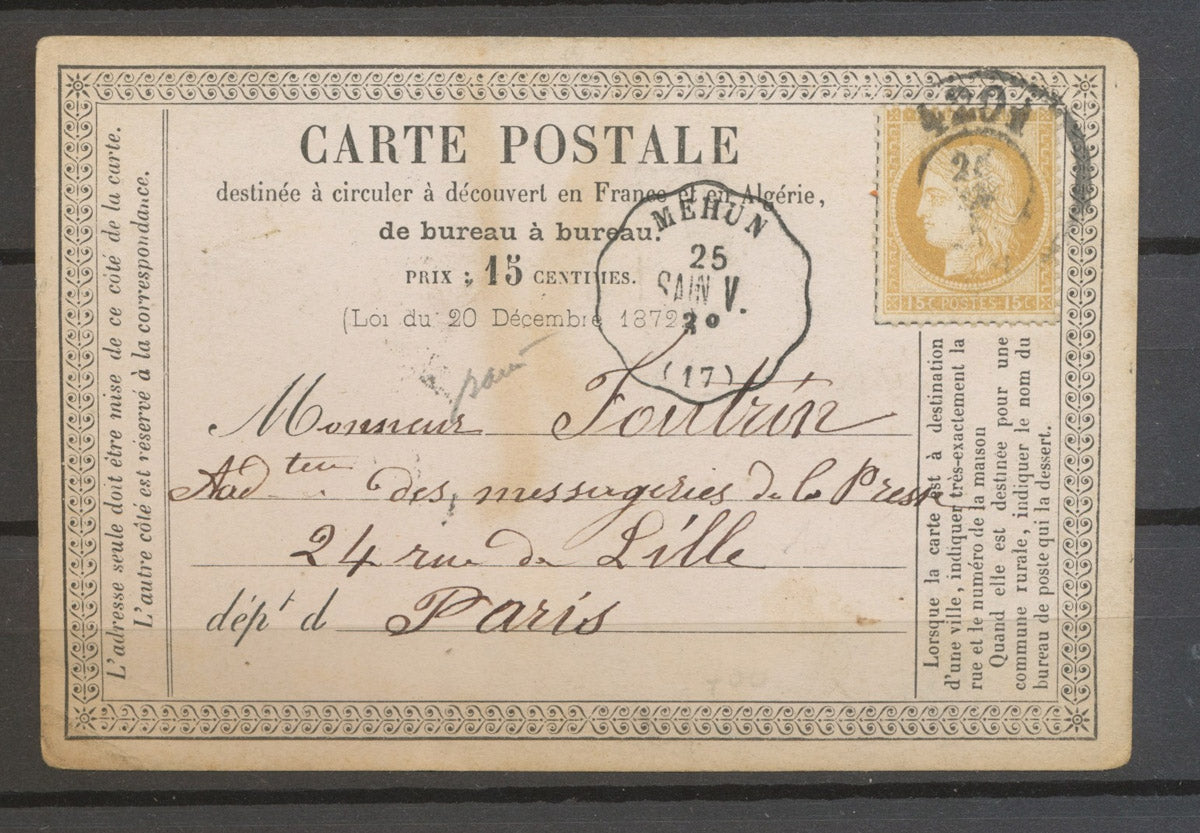 CARTE POSTALE
destinée à circuler à découvert en France et en Algérie,
de bureau à bureau.
PRIX : 15 CENTIMES.
(Loi du 20 Décembre 1872
MEHUN
25
V.
(17)
4201
15 C POSTES 15 C
Monsieur Foutrin
des messageries de la Presse
24 rue de Lille
dépt d Paris
L'adresse seule doit être mise de ce côté de la carte.
L'autre côté est réservé à la correspondance.
Lorsque la carte est à destination
d'une ville, indiquer très-exactement la
rue et le numéro de la maison
Quand elle est destinée pour une
commune rurale, indiquer le nom du
bureau de poste qui la dessert.